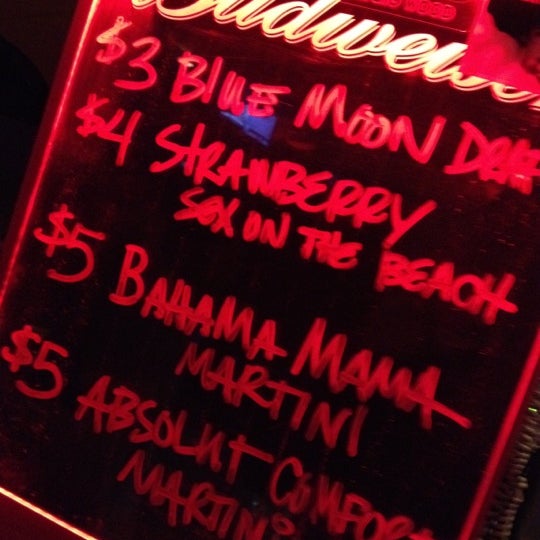 Budweiser
$3 BLUE MOON DRAF
$4 STRAWBERRY
SEX ON THE BEACH
$5 BAHAMA MAMA
MARTINI
$5 ABSOLUT COMFORT
MARTINI